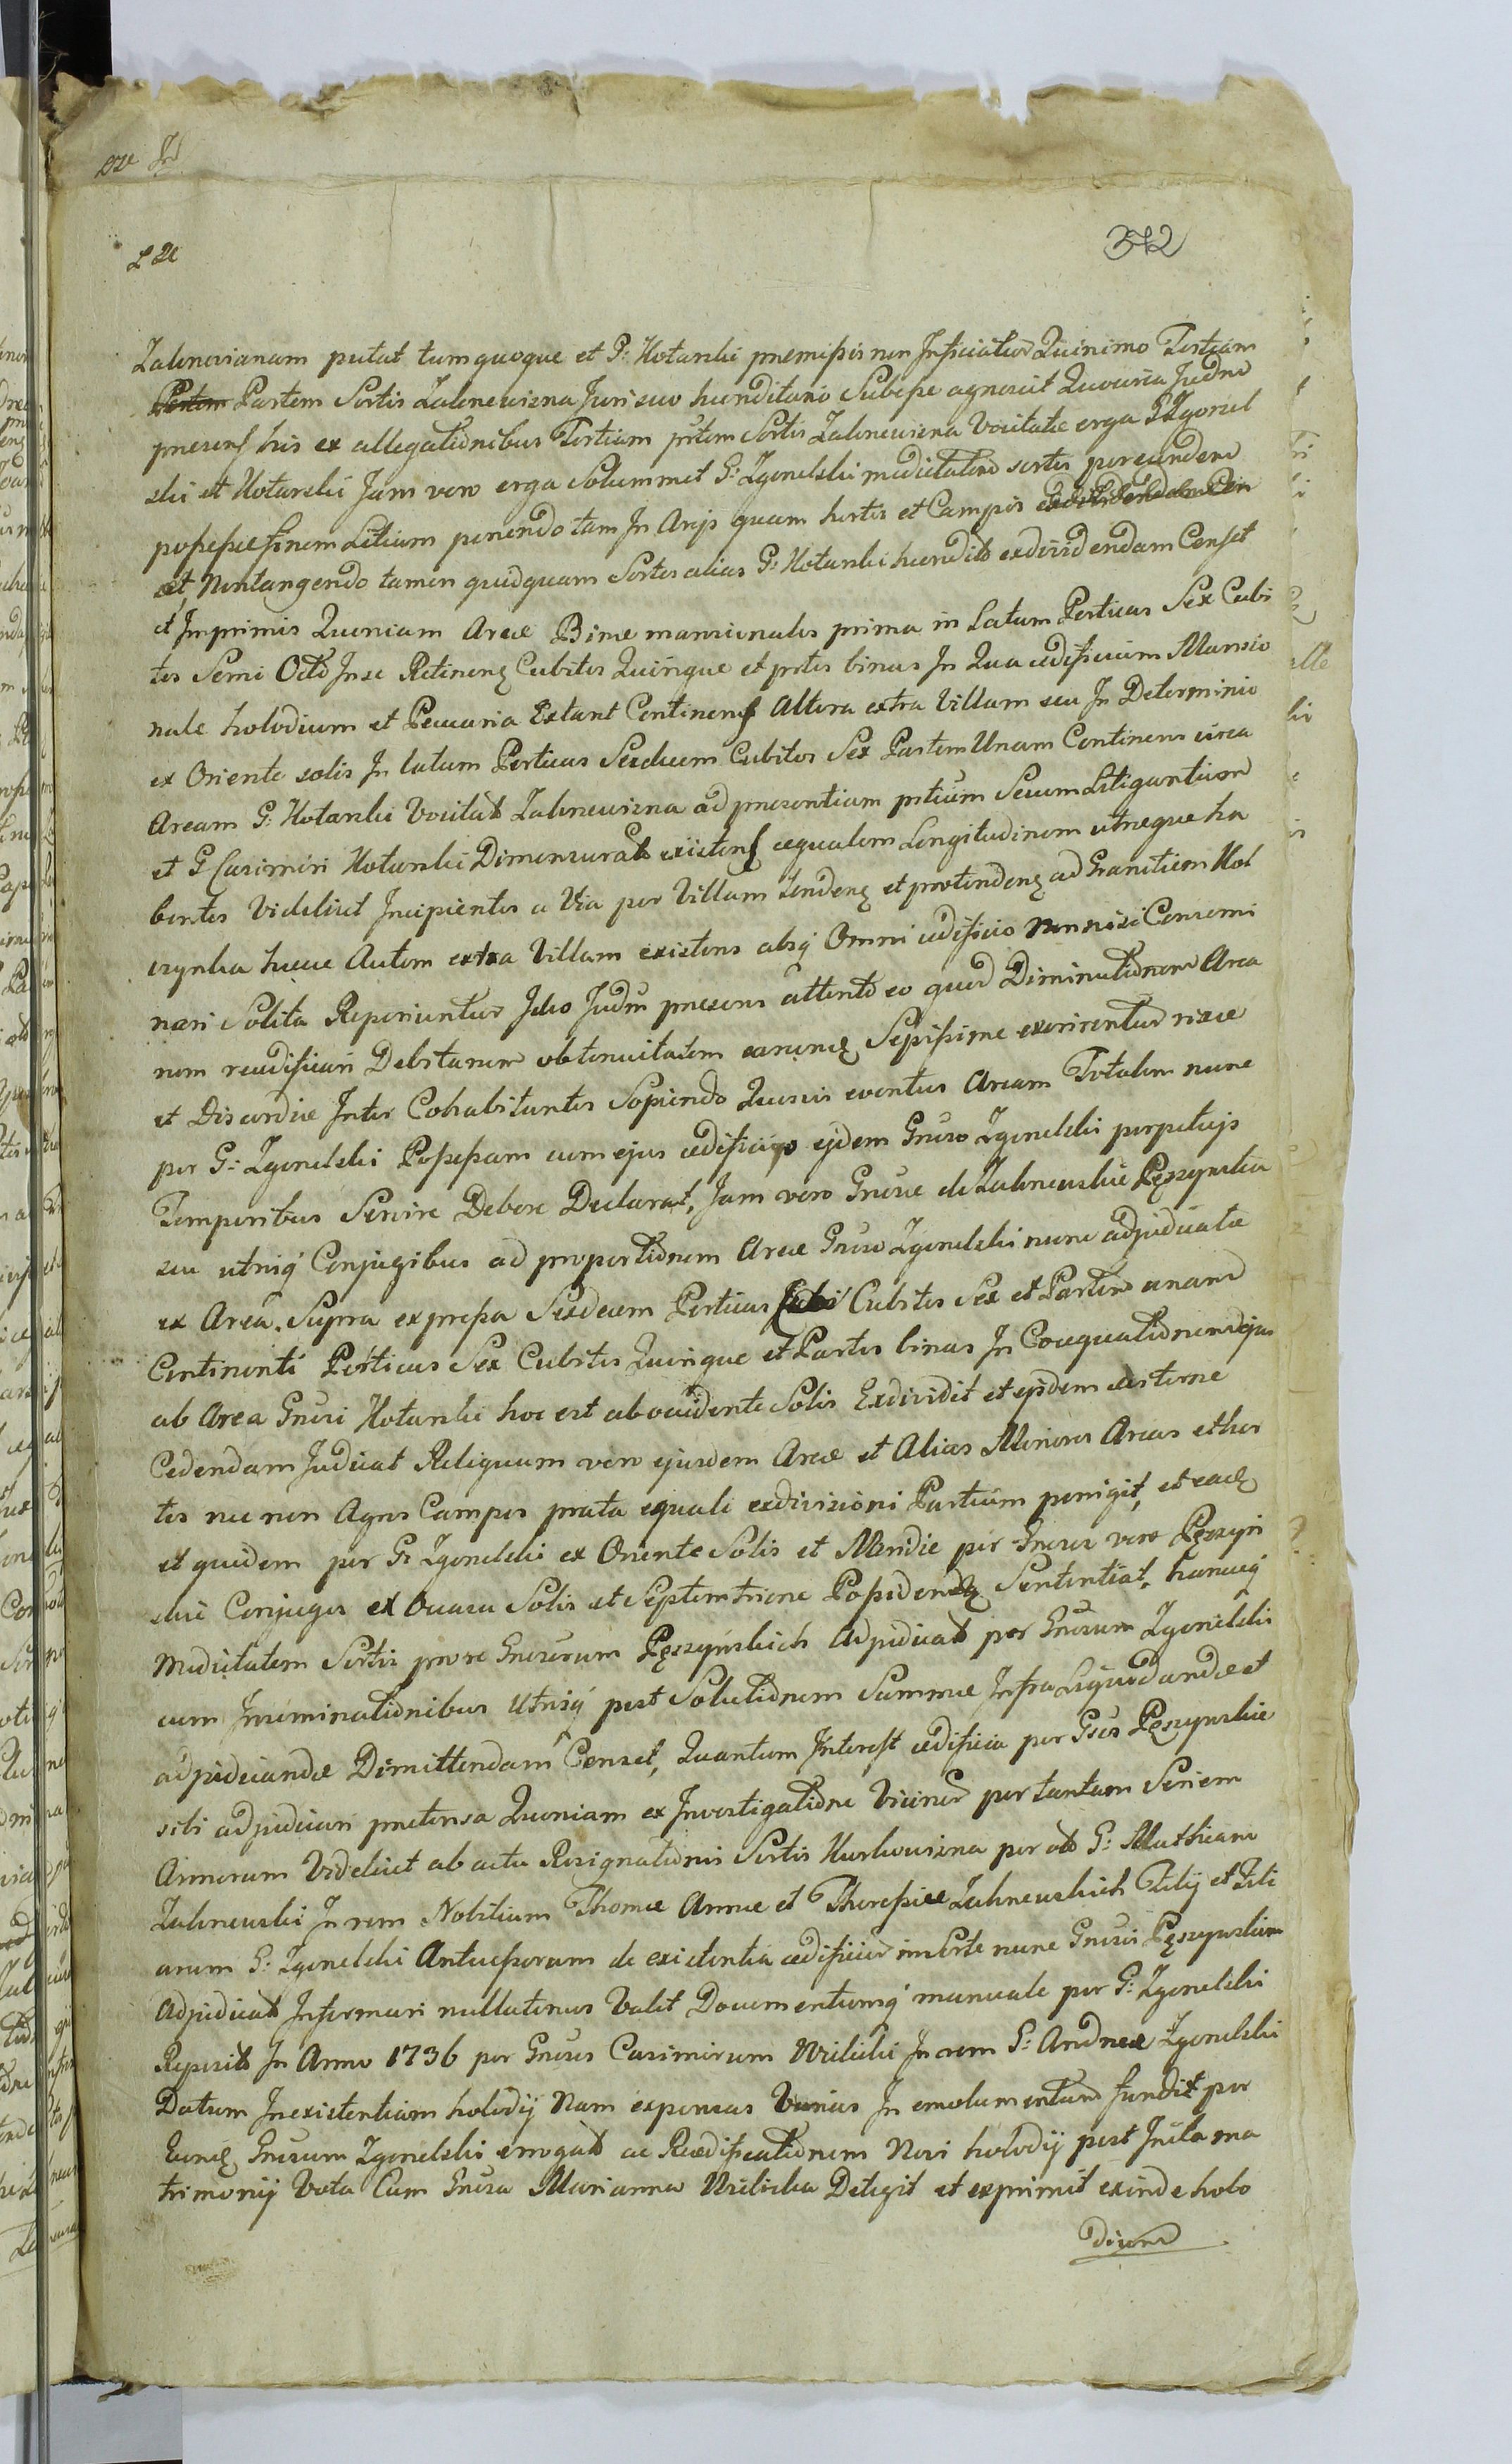 372
Zalenovianam putat tum quoque et G: Kotarski premissis non Inficiatur Quinimo Tertiam
Partem Partem Sortis Zaleneuizna Juri suo hereditario Subesse agnoscit Judm
presens his ex allegationibus Tertiam ptem Sortis Zaleneuizna Vocitatae erga G Zgorzel
ski et Kotarski Jam vero erga Solummet G: Zgorzelski medietatem sortis per eundem
possessae finem Litium ponendo tam In Areis quam hortis et Campis
et Nontangendo tamen quidquam Sortes alias G: Kotarski heredit exdividendam Censet
et Imprimis Quoniam Areae Binae mansionales prima in Latum Perticas Sex Cubi
tos Semi Octo In se Retinens Cubitos Quinque et ptes binas In Qua aedificium Mansio
nale holodium et Pecuaria Extant Continens Altera extra Villam seu In Determinio
ex Oriente solis In latum Perticas Sexdecim Cubitos Sex Partem Unam Continens circa
Aream G: Kotarski Vocitat Zaleneuizna ad presentiam ptium Secum Litigantium
et G Casimiri Kotarski Dimensurat existens aequalem Longitudinem utraeque ha
bentes Videlicet Incipientes a Via per Villam tendens et protendens ad Granitiem Kol
czynska haecce Autem extra Villam existens absq Omni aedificio Non nisi Consemi
nari Solita Reperiuntur Ideo Judm presens attento eo quod Diminutionem Area
nem reedificari Debitarum obtenuitatem earund Sepissime exorirentur rixae
et Discordiae Inter Cohabitantes Sopiendo Quosvis eventus Aream Totalem nunc
per G: Zgorzelski Possessam cum ejus aedificijs ejdem Gnroso Zgorzelski perpetuis
Temporibus Servire Debere Declarat, Jam vero Gnrosae de Zaleneuskie Pęszynska
seu utrisq Conjugibus ad proportionem Areae Gnroso Zgorzelski nunc adjudicatae
ex Area Supra expressa Sexdecim Perticas Cubitos Sex et Partem unam
Continenti Perticas Sex Cubitos Quinque et Partes binas In Coaequationem ejus
ab Area Gnrosi Kotarski hoc est ab occidente Solis Exdividit et ejsdem
Cedendam Judicat Reliquum vero ejusdem Areae et Alias Minores Areas et hor
tos nec non Agros Campos prata equali exdivisioni Partium porrigit, et
et quidem per G: Zgorzelski ex Oriente Solis et Meridie per Gnrosos vero Pęszyn
skie Conjuges ex Ouasu Solis et Septemtrione Possidend Sententiat, hancq
Medietatem Sortis pro re Gnrosorum Pęszynskich Adjudicat per Gnrosum Zgorzelski
cum Inseminationibus Utrisq post Solutionem Summae Infra Liquidandae et
adjudicandae Dimittendam Censet, Quantum Interest aedificia per Gsos Pęszynskie
sibi adjudicari pretensa Quoniam ex Investigatione Vicinor per tantam Seriem
Annorum Videlicet ab actu Resignationis Sortis Kurkowizna per ol G: Mathiam
Zaleneuski In rem Nobilium Thomae Annae et Theressiae Zaleneuskich Filij et Fili
arum G: Zgorzelski Antecessorum de existentia aedificior in Sorte nunc Gnrosis Pęszynskim
Adjudicat Informari nullatenus Valet Documentumq manuale per G: Zgorzelski
Reposit In Anno 1736 per Gnrosos Casimirum Wilicki In rem G: Andreae Zgorzelski
Datum Inexistentiam holodij Nam expensas Varias In emolumentum fundi per
Eund Gnrosum Zgorzelski erogat ac Reedificationem Novi holodij post Inita ma
trimonij Vota Cum Gnrosa Marianna Wilicka Detegit et exprimit exinde holo
dium